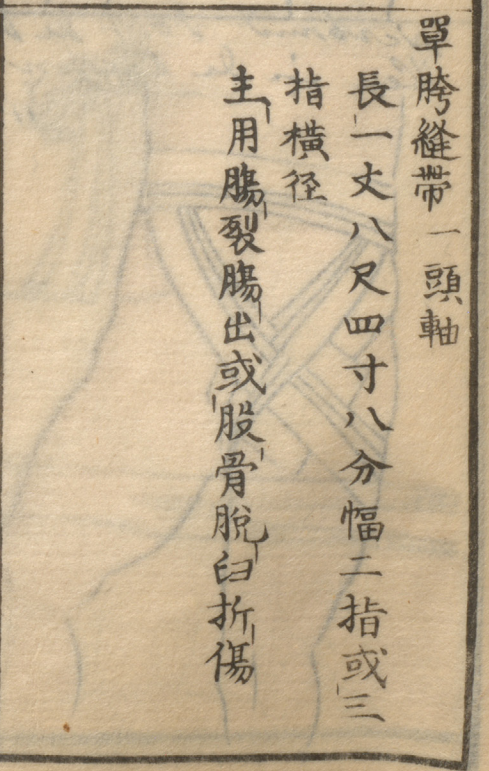 單胯縫帶一頭軸
長一丈八尺四寸八分幅二指或三
指橫径
主用腸裂腸出或股骨脫臼折傷